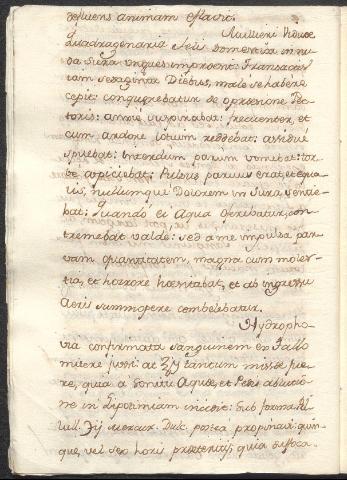 defluens animam efflavit.
Mulieri Viduæ
Quadragenariæ Felis domestica in nu-
da Sura ungues impresit: Transactis
iam sexaginta Diebus, malè se habere
cepit: conquærebatur de opresione Pec-
toris: anxiè suspirabat: frecuenter, et
cum ardore lotium reddebat: assiduè
spuebat: interdum parum vomebat: tor-
vè aspiciebat: Pulsus parvus erat, et æqua-
lis, nullumque Dolorem in Sura sentie-
bat: Quando ei Aqua oferebatur, con-
tremebat valde: sed a me impulsa par-
vam quantitatem, magna cum moles-
tia, et horrore hoerebat, et ab ingressu
Aeris summopere
Hydropho-
via confirmata sanguinem ex Tallo
mitere jussi at tantum missæ fue-
re, quia a sonitu Aquæ, et Pedis ablutio-
ne in Lipotimiam incidit: sub forma
Mercur. Dulc. postea propinavi quin-
que, vel sex horis præteritis, quia suffoca-